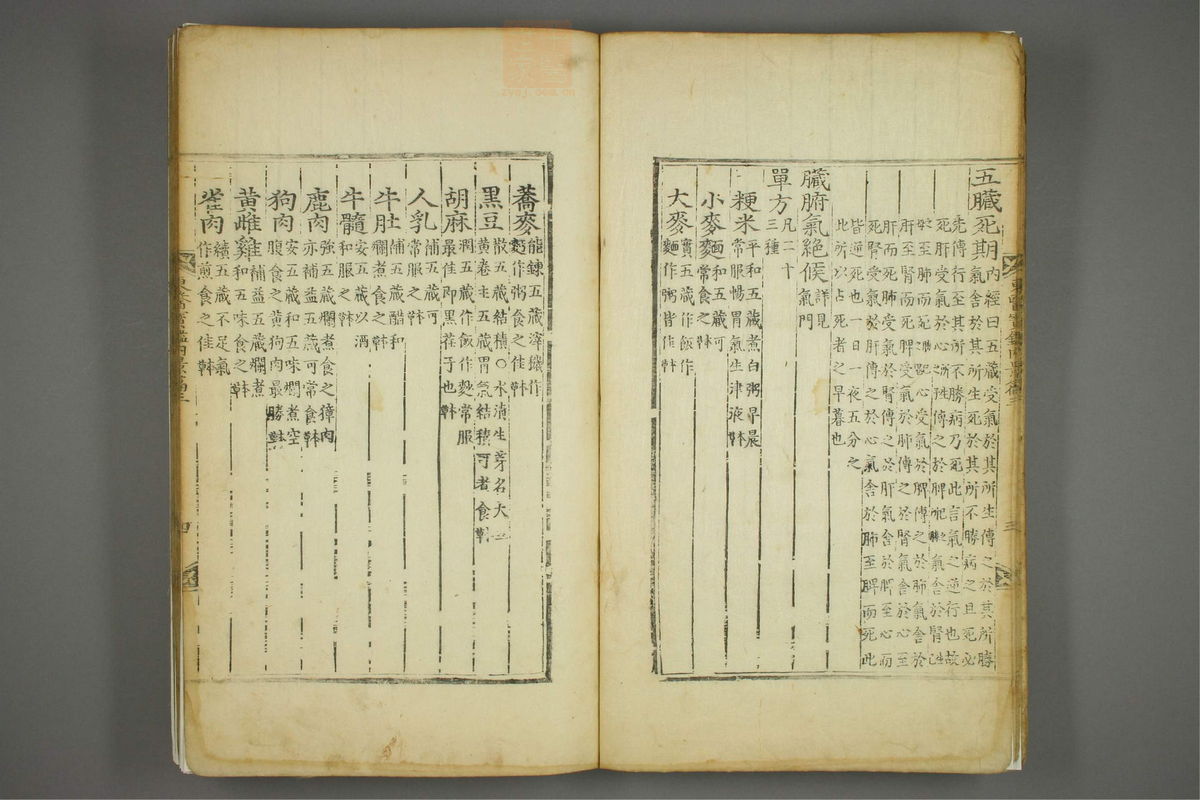 五臟死期內經曰五藏受氣於其所生傳之於其所勝
氣舍於其所生死於其所不勝病之且死必
先傳行至其所不勝病乃死此言氣之逆行也故
死肝受氣於心傳之於脾氣舍於腎
至肺而死心受氣於脾傳之於肺氣舍於
肝至腎而死脾受氣於肺傳之於腎氣舍於心至
肝而死肺受氣於腎傳之於肝氣舍於脾至心而
死腎受氣於肝傳之於心氣舍於肺至脾而死此
皆逆死也一日一夜五分之
此所以占死者之早暮也
臟腑氣絕候詳見
氣門
單方凡二十
三種
粳米平和五藏煮白粥早晨
常服暢胃氣生津液本
小麥麪和五藏可
常食之本
大麥實五藏作飯作
麪作粥皆佳本
蕎麥能鍊五藏滓穢作
麪作粥食之佳本
黑豆散五藏結積○水漬生芽名大豆
黃卷主五藏胃氣結積可煮食本
胡麻潤五藏作飯作麨常服
最佳即黑荏子也本
人乳補五藏可
常服之本
牛肚補五藏醋和
爛煮食之本
牛髓安五藏以酒
和服之本
鹿肉強五藏爛煮食之獐肉
亦補益五藏可常食本
狗肉安五藏和五味爛煮空
腹食之黃狗肉最勝本
黃雌雞補益五藏爛煮
和五味食之本
雀肉續五藏不足氣
作煎食之佳本
東醫寶鑑內景篇三
三
四